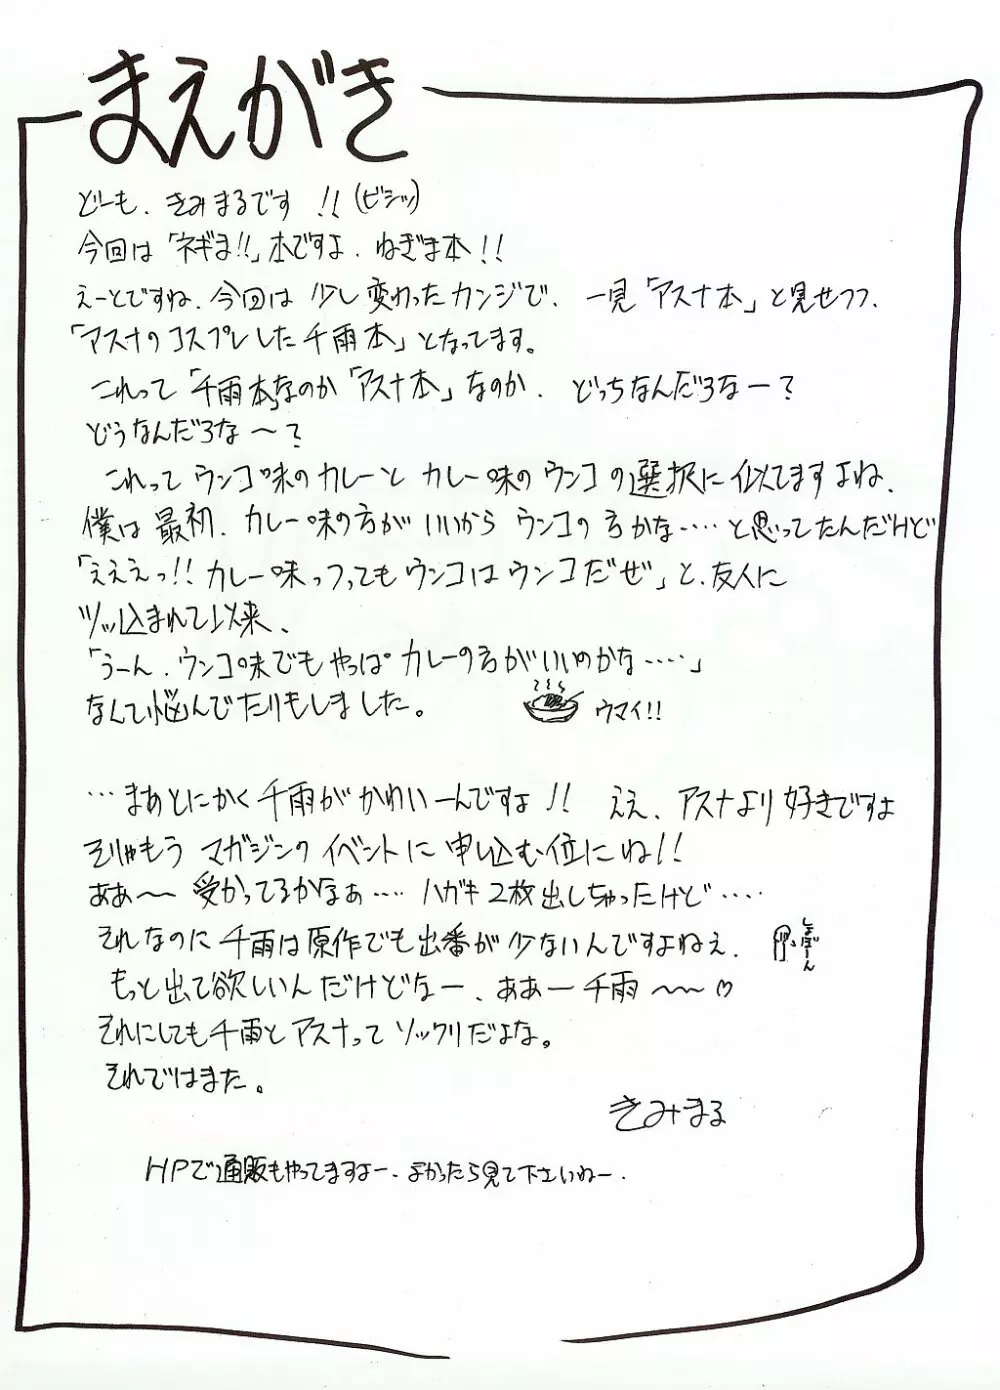 まえがき
どーも、きみまるです!!(ビシッ)
今回は「ネギま!!」本ですよ、ねぎま本!!
えーとですね、今回は少し変わったカンジで、一見「アスナ本」と見せつつ、
「アスナのコスプレした千雨本」となってます。
これって「千雨本」なのか「アスナ本」なのか、どっちなんだろなー?
どうなんだろな〜?
これってウンコ味のカレーとカレー味のウンコの選択に似てますよね、
僕は最初、カレー味の方がいいからウンコの方かな‥‥と思ってたんだけど
「えええっ!!カレー味っつってもウンコはウンコだぜ」と、友人に
ツッ込まれて以来、
「うーん、ウンコ味でもやっぱカレーの方がいいのかな‥‥」
なんて悩んでたりもしました。
ウマイ!!
…まあとにかく千雨がかわいーんですよ!!ええ、アスナより好きですよ
そりゃもうマガジンのイベントに申し込む位にね!!
ああ〜受かってるかなぁ‥‥ハガキ2枚出しちゃったけど‥‥
それなのに千雨は原作でも出番が少ないんですよねぇ、
しょぼーん
もっと出て欲しいんだけどなー、ああー千雨〜〜♡
それにしても千雨とアスナってソックリだよな。
それではまた。
きみまる
HPで通販もやってますよー、よかったら見て下さいねー.